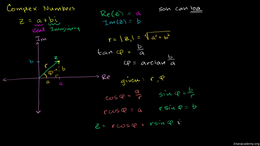 Complex Numbers
z = a + bi
Real Imaginary
Im
Re
z
b
r
φ
a
Re(z) = a
Im(z) = b
r = |z| = √a² + b²
tan φ = b/a
φ = arctan b/a
given: r, φ
cos φ = a/r sin φ = b/r
r cos φ = a r sin φ = b
z = r cos φ + r sin φ i
soh cah toa